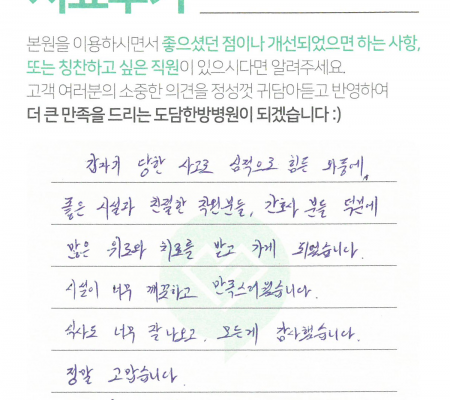 치료후기
본원을 이용하시면서 좋으셨던 점이나 개선되었으면 하는 사항,
또는 칭찬하고 싶은 직원이 있으시다면 알려주세요.
고객 여러분의 소중한 의견을 정성껏 귀담아듣고 반영하여
더 큰 만족을 드리는 도담한방병원이 되겠습니다 :)
갑자기 당한 사고로 심적으로 힘든 와중에,
좋은 시설과 친절한 직원분들, 간호사 분들 덕분에
많은 위로와 치료를 받고 가게 되었습니다.
시설이 너무 깨끗하고 만족스러웠습니다.
식사도 너무 잘 나오고. 모든게 감사했습니다.
정말 고맙습니다.